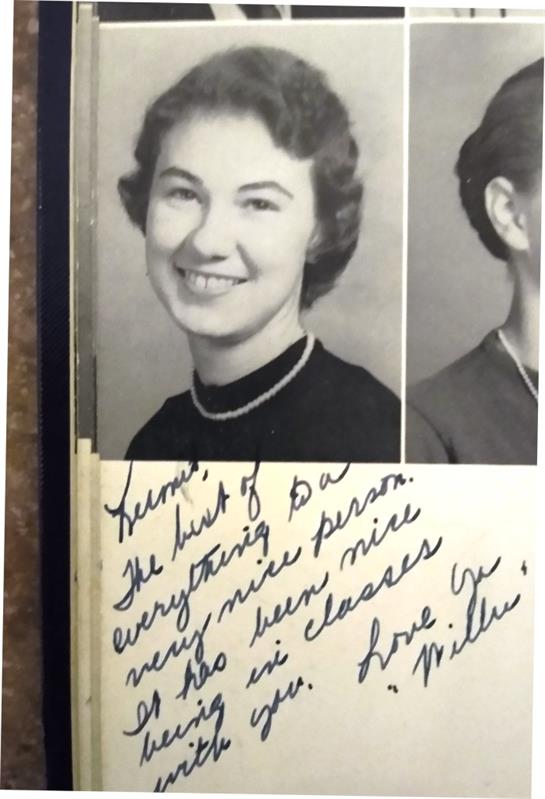 The best of
everything to a
very nice person.
It has been nice
being in classes
with you. Love ya
"Willie"